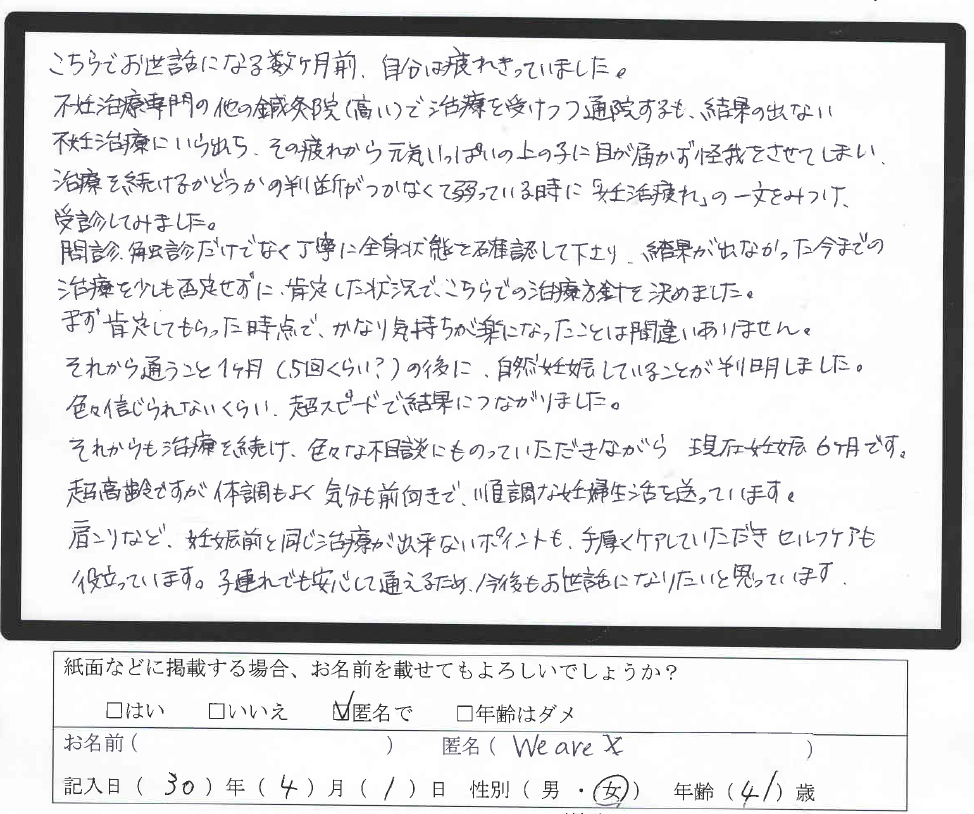 こちらでお世話になる数ヶ月前、自分は疲れきっていました。
不妊治療専門の他の鍼灸院(高い)で治療を受けつつ通院するも、結果の出ない
不妊治療にいら出ち、その疲れから元気いっぱいの上の子に目が届かず怪我をさせてしまい、
治療を続けるかどうかの判断がつかなくて弱っている時に「妊活疲れ」の一文をみつけ、
受診してみました。
問診、触診だけでなく丁寧に全身状態を確認して下さり、結果が出なかった今までの
治療を少しも否定せずに、肯定した状況で、こちらでの治療方針を決めました。
まず肯定してもらった時点で、かなり気持ちが楽になったことは間違いありません。
それから通うこと1ヶ月(5回くらい?)の後に、自然妊娠していることが判明しました。
色々信じられないくらい、超スピードで結果につながりました。
それからも治療を続け、色々な相談にものっていただきながら 現在妊娠6ヶ月です。
超高齢ですが体調もよく気分も前向きで、順調な妊婦生活を送っています。
肩こりなど、妊娠前と同じ治療が出来ないポイントも、手厚くケアしていただきセルフケアも
役立っています。子連れでも安心して通えるため、今後もお世話になりたいと思っています.
紙面などに掲載する場合、お名前を載せてもよろしいでしょうか?
□はい □いいえ ☑匿名で □年齢はダメ
お名前( ) 匿名( We are X )
記入日( 30 )年( 4 )月( 1 )日 性別( 男 ・ 女 ) 年齢( 41 )歳